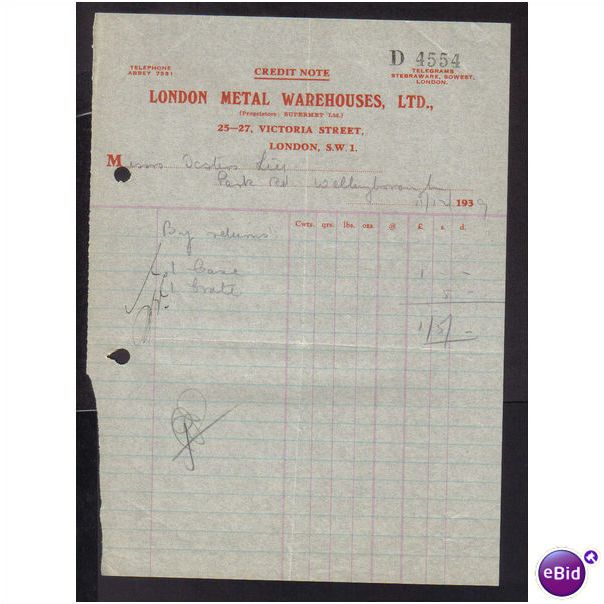 D 4554
TELEPHONE
ABBEY 7581
CREDIT NOTE
TELEGRAMS
STEBRAWARE, SOWEST,
LONDON.
LONDON METAL WAREHOUSES, LTD.,
(Proprietors: SUPERMET Ltd.)
25—27, VICTORIA STREET,
LONDON, S.W.1.
Messrs
Park Rd Wellingborough
11/12/1939
Cwts. qrs. lbs. ozs. @ £. s. d.
By returns:
1 Case 1 - -
1 Crate 5 -
1/5/-
eBid